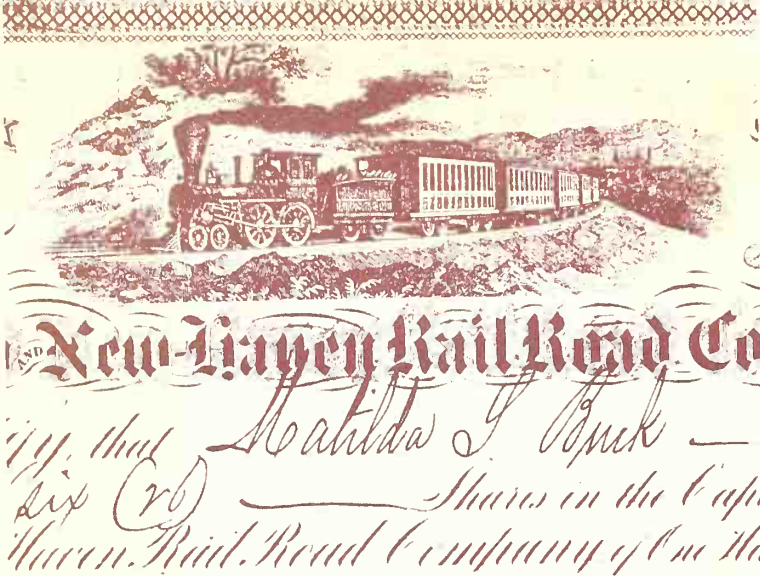 AND New-Haven Rail Road Co
ify, that Matilda S Buck
six (26) Shares in the Cap
Haven Rail Road Company of One Hu